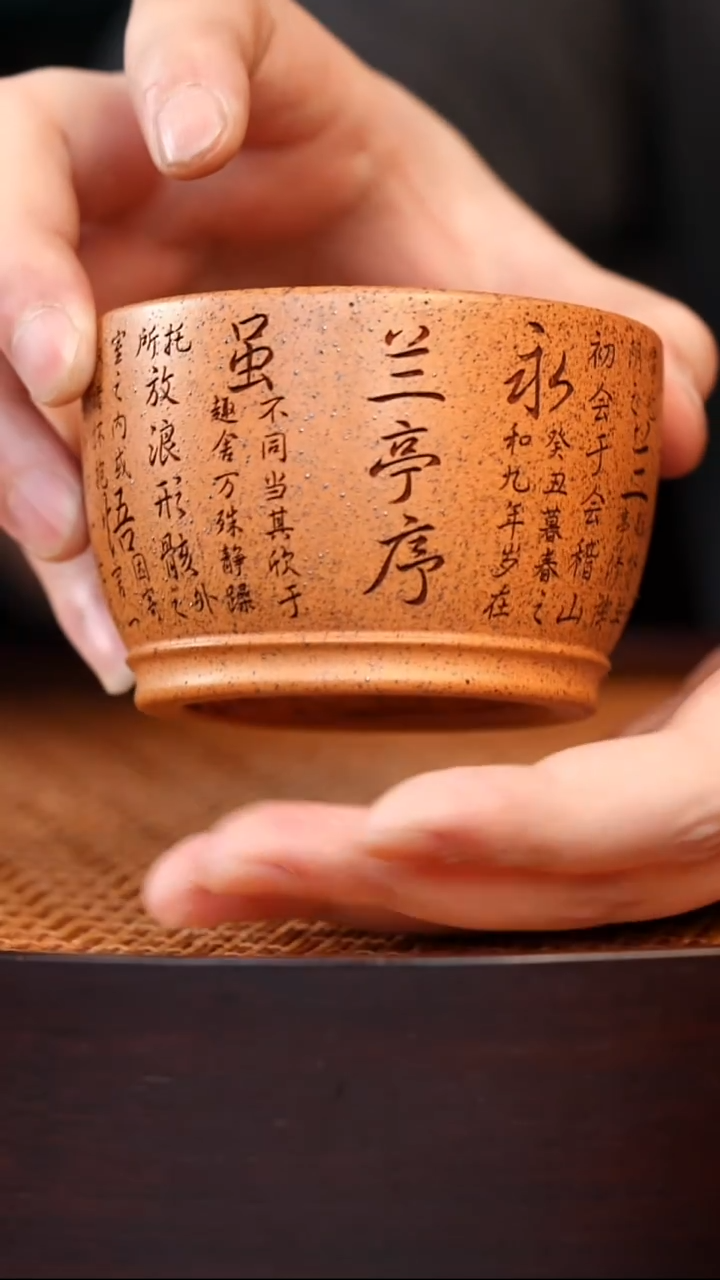 怀抱
悟言一
室之内或
因寄
所托
放浪形骸之外
虽
趣舍万殊静躁
不同当其欣于
兰亭序
永
和九年岁在
癸丑暮春之
初会于会稽山